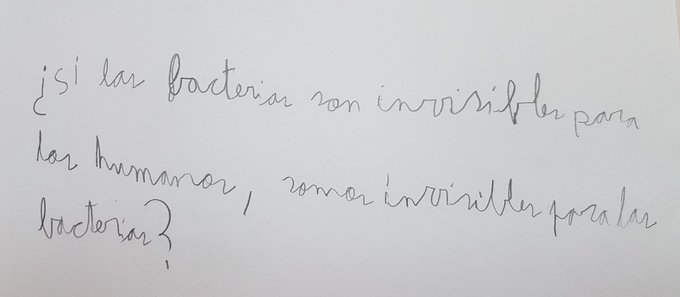 ¿si las bacterias son invisibles para
los humanos, somos invisibles para las
bacterias?